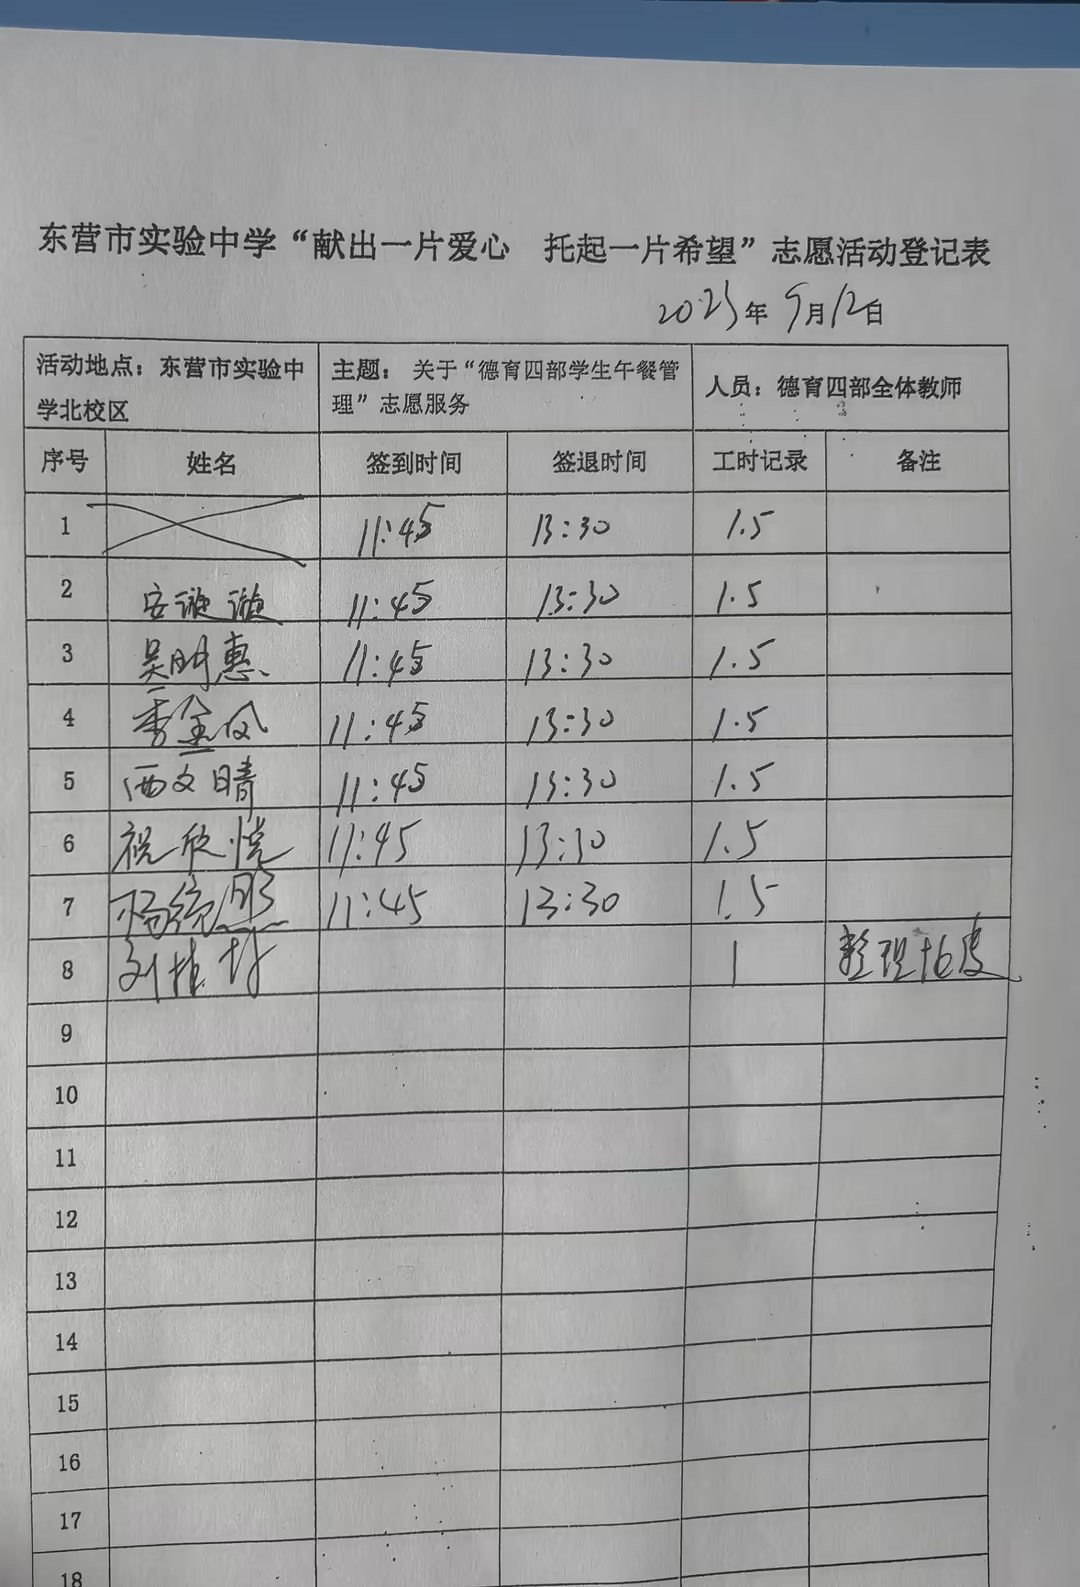 东营市实验中学“献出一片爱心 托起一片希望”志愿活动登记表
2023年9月12日
活动地点：东营市实验中学北校区 主题：关于“德育四部学生午餐管理”志愿服务 人员：德育四部全体教师
序号 姓名 签到时间 签退时间 工时记录 备注
1 11:45 13:30 1.5
2 安璇璇 11:45 13:30 1.5
3 吴明惠 11:45 13:30 1.5
4 季金凤 11:45 13:30 1.5
5 西文晴 11:45 13:30 1.5
6 祝欣悦 11:45 13:30 1.5
7 杨 11:45 13:30 1.5
8 刘 1 整理
9
10
11
12
13
14
15
16
17
18